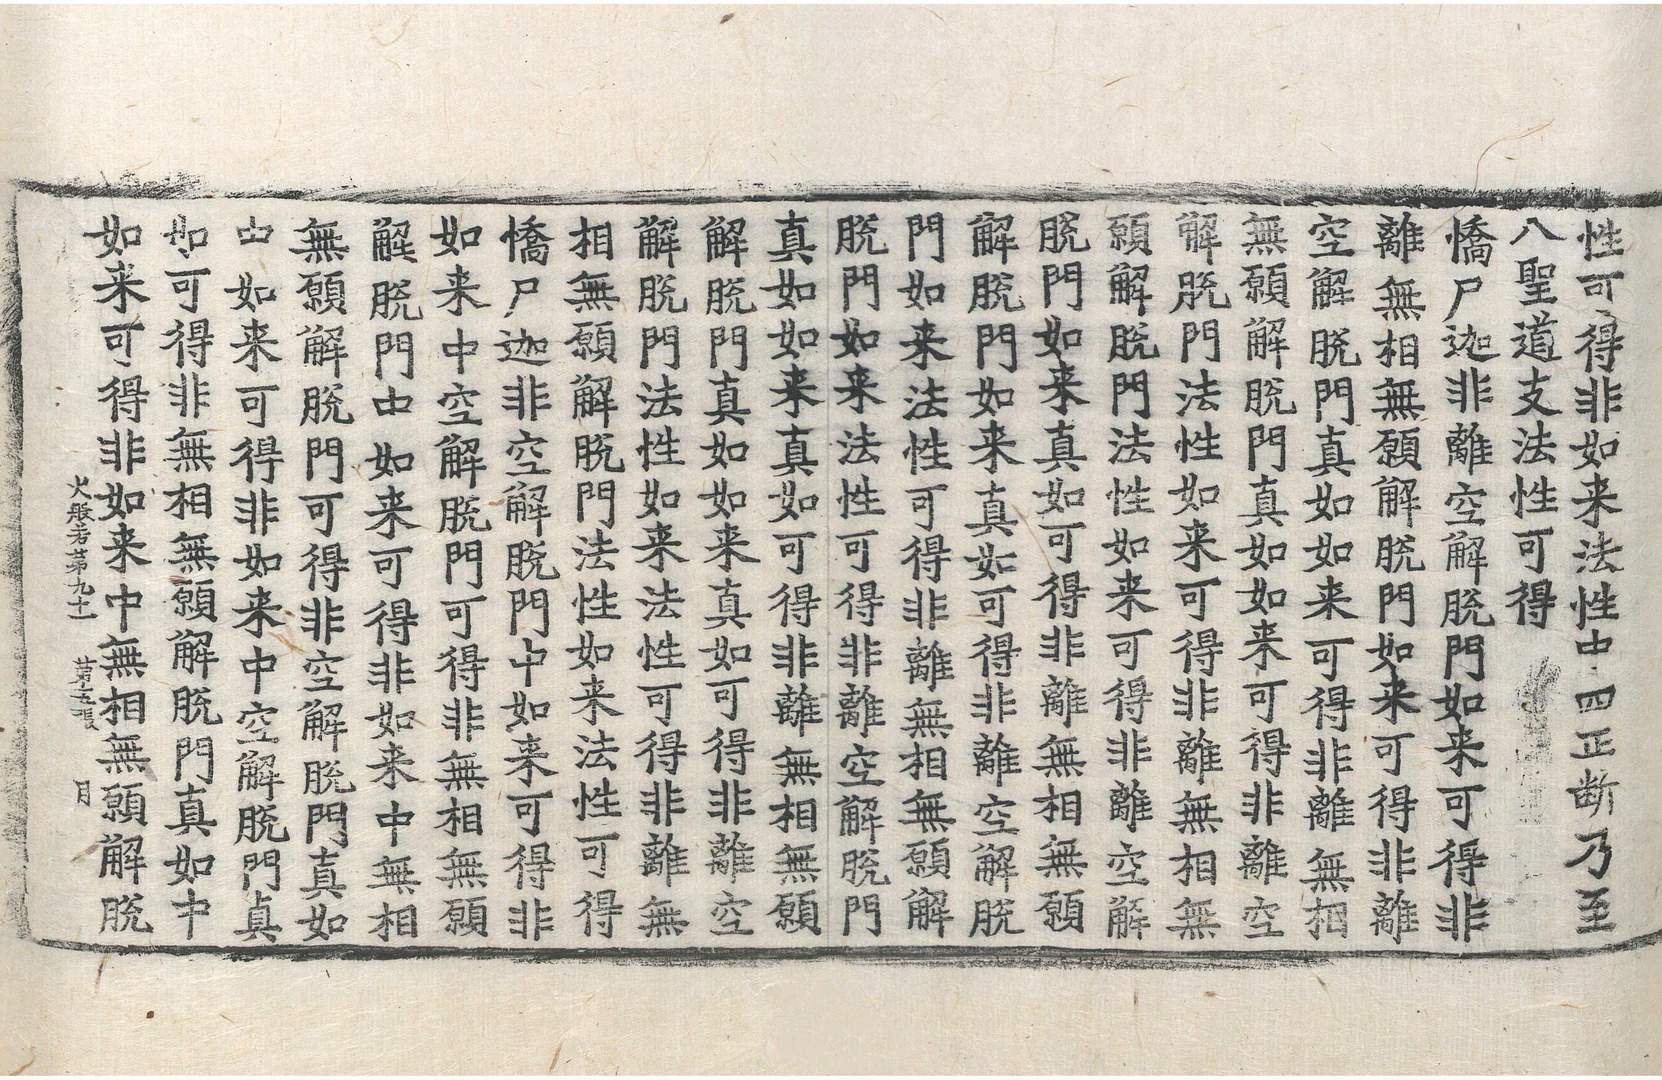 性可得非如来法性中四正断乃至
八聖道支法性可得
憍尸迦非離空解脫門如来可得非
離無相無願解脫門如来可得非離
空解脫門真如如来可得非離無相
無願解脫門真如如来可得非離空
解脫門法性如来可得非離無相無
願解脫門法性如来可得非離空解
脫門如来真如可得非離無相無願
解脫門如来真如可得非離空解脫
門如来法性可得非離無相無願解
脫門如来法性可得非離空解脫門
真如如来真如可得非離無相無願
解脫門真如如来真如可得非離空
解脫門法性如来法性可得非離無
相無願解脫門法性如来法性可得
憍尸迦非空解脫門中如来可得非
如来中空解脫門可得非無相無願
解脫門中如来可得非如来中無相
無願解脫門可得非空解脫門真如
中如来可得非如来中空解脫門真
如可得非無相無願解脫門真如中
如来可得非如来中無相無願解脫
大般若第九十一 第五張 月